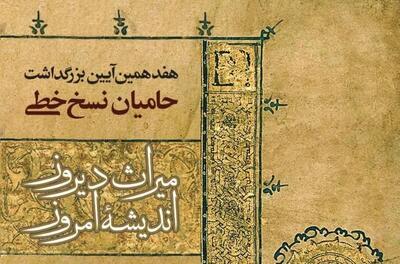 هفدهمین آیین بزرگداشت
حامیان نسخ خطی
میراث دیروز
اندیشهٔ امروز